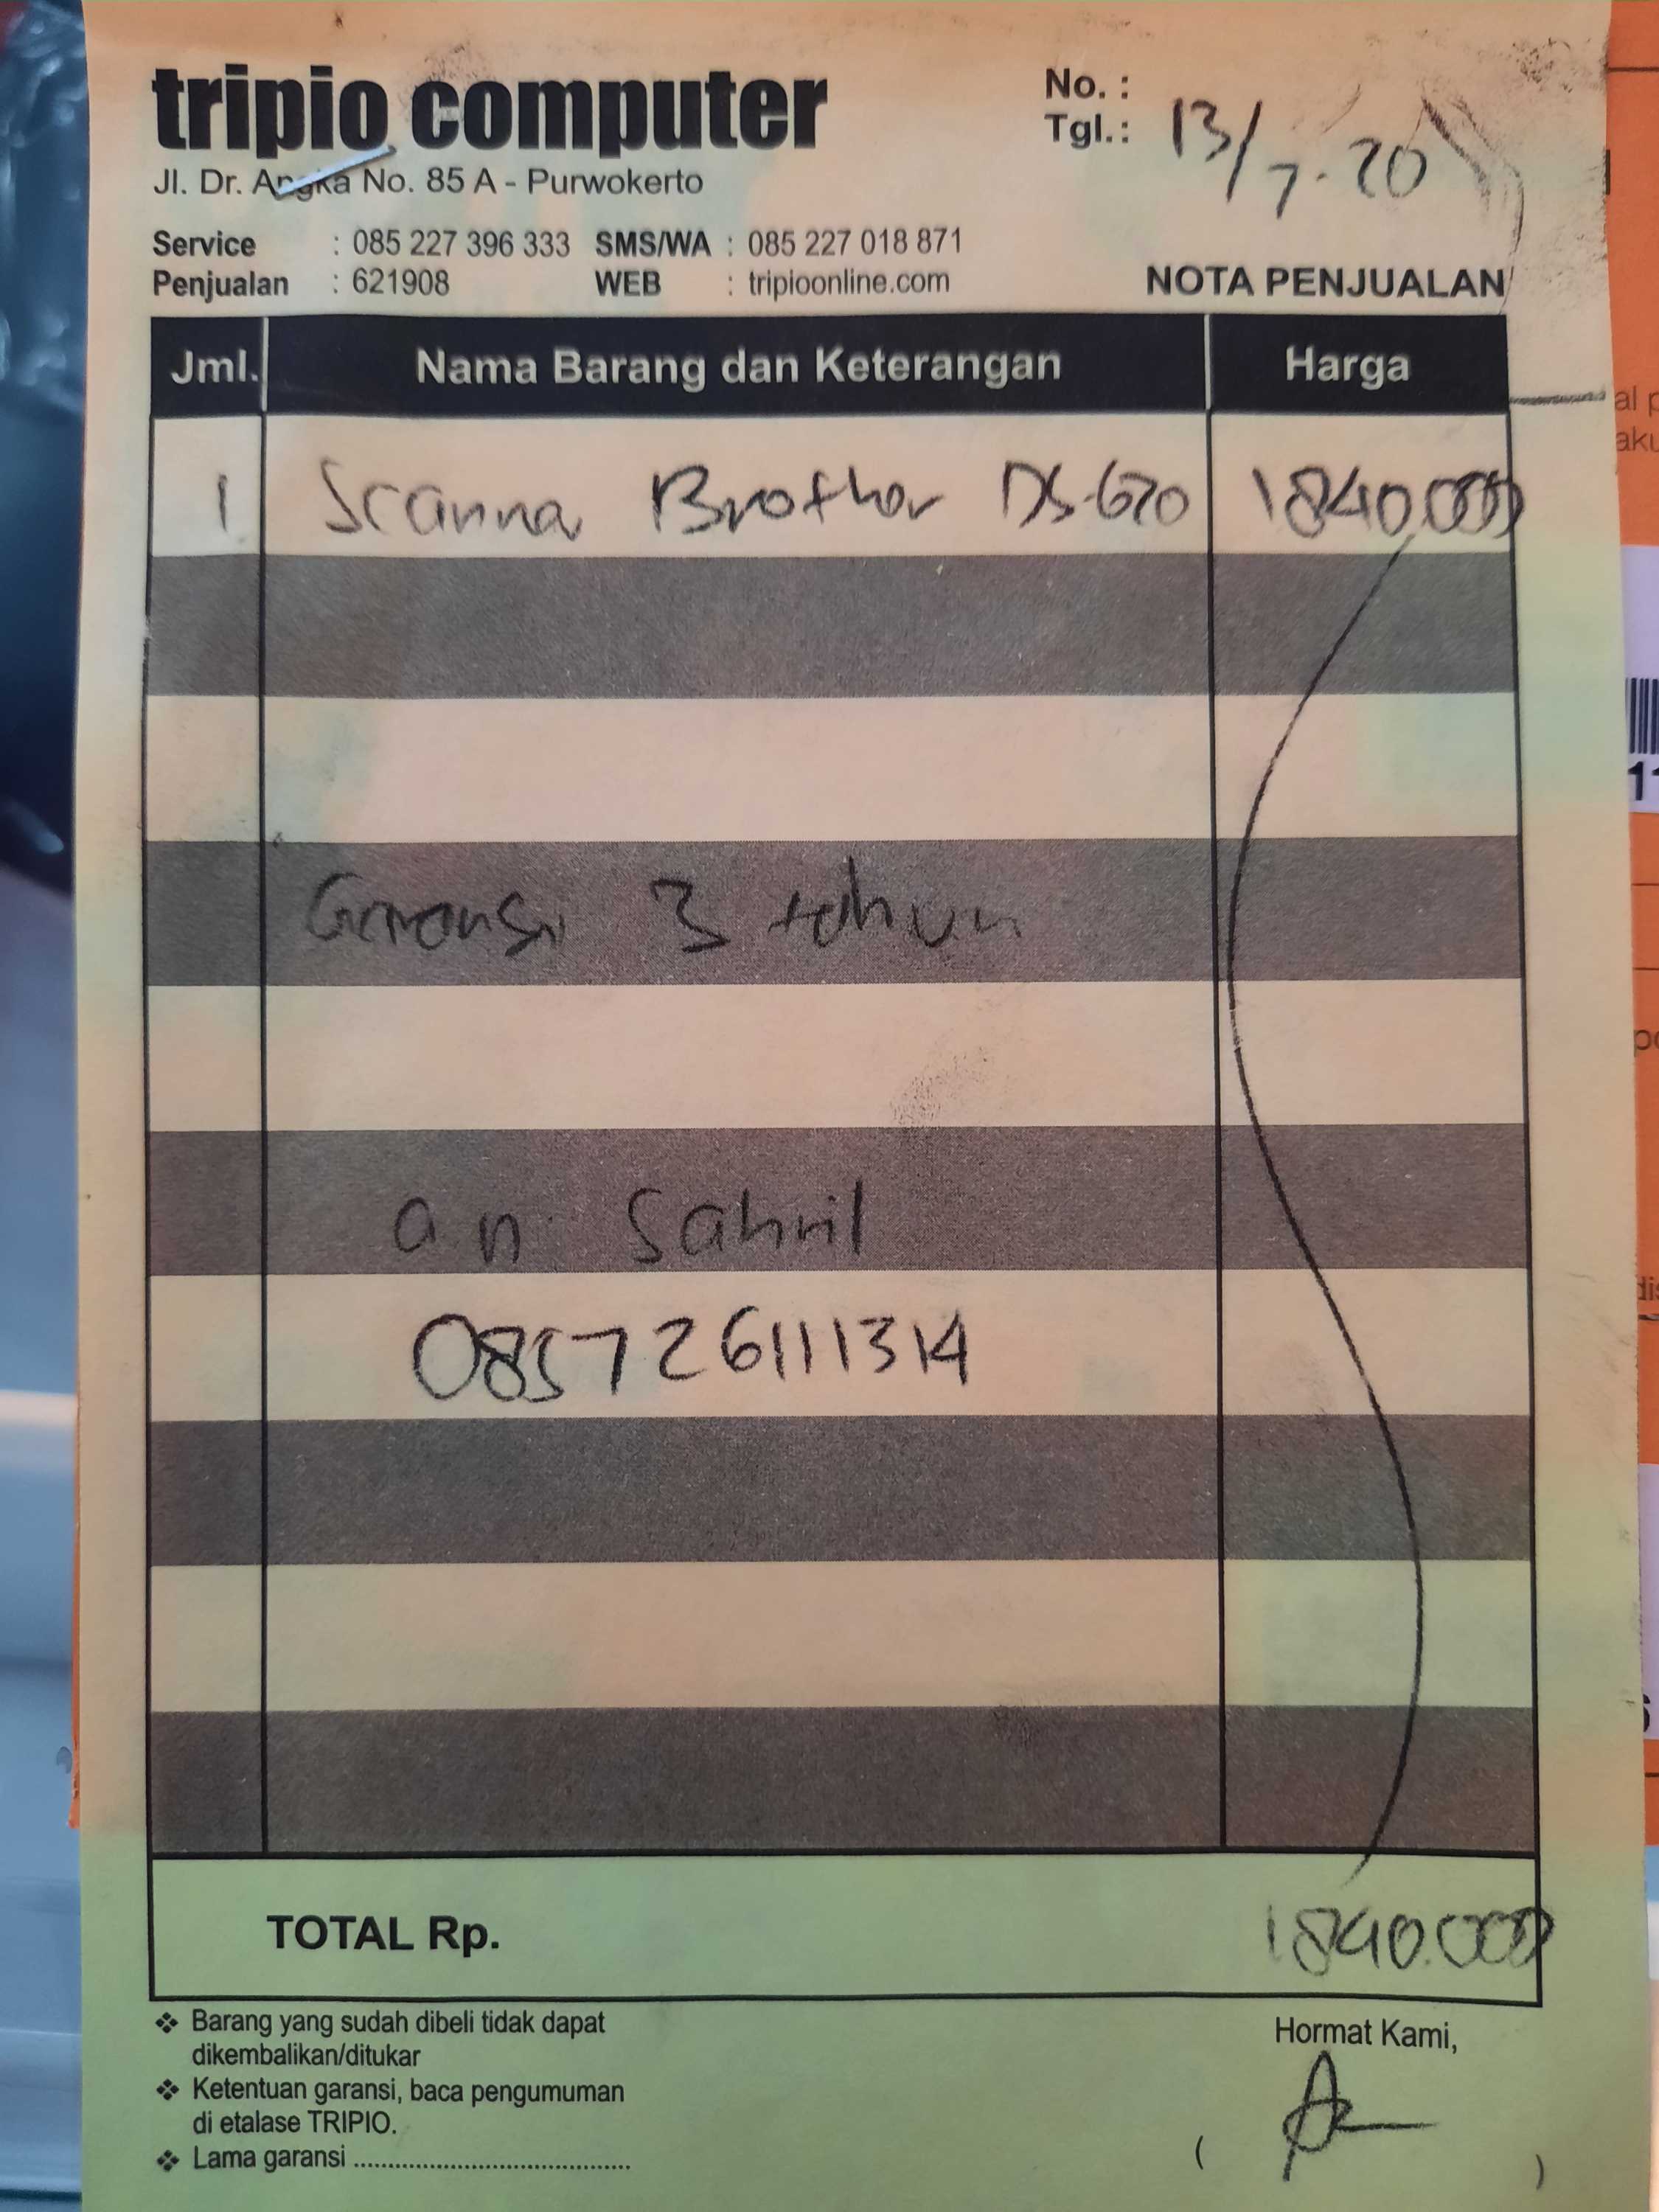 tripio computer
Jl. Dr. Angka No. 85 A - Purwokerto
No. :
Tgl.: 13/7-20
Service : 085 227 396 333 SMS/WA : 085 227 018 871
Penjualan : 621908 WEB : tripioonline.com
NOTA PENJUALAN
Jml. Nama Barang dan Keterangan Harga
1 Scanner Brother DS-620 1840.000
Garansi 3 tahun
a.n. Sahril
085726111314
TOTAL Rp. 1840.000
❖ Barang yang sudah dibeli tidak dapat
dikembalikan/ditukar
❖ Ketentuan garansi, baca pengumuman
di etalase TRIPIO.
❖ Lama garansi ........................................
Hormat Kami,
( )
al p
aku
11